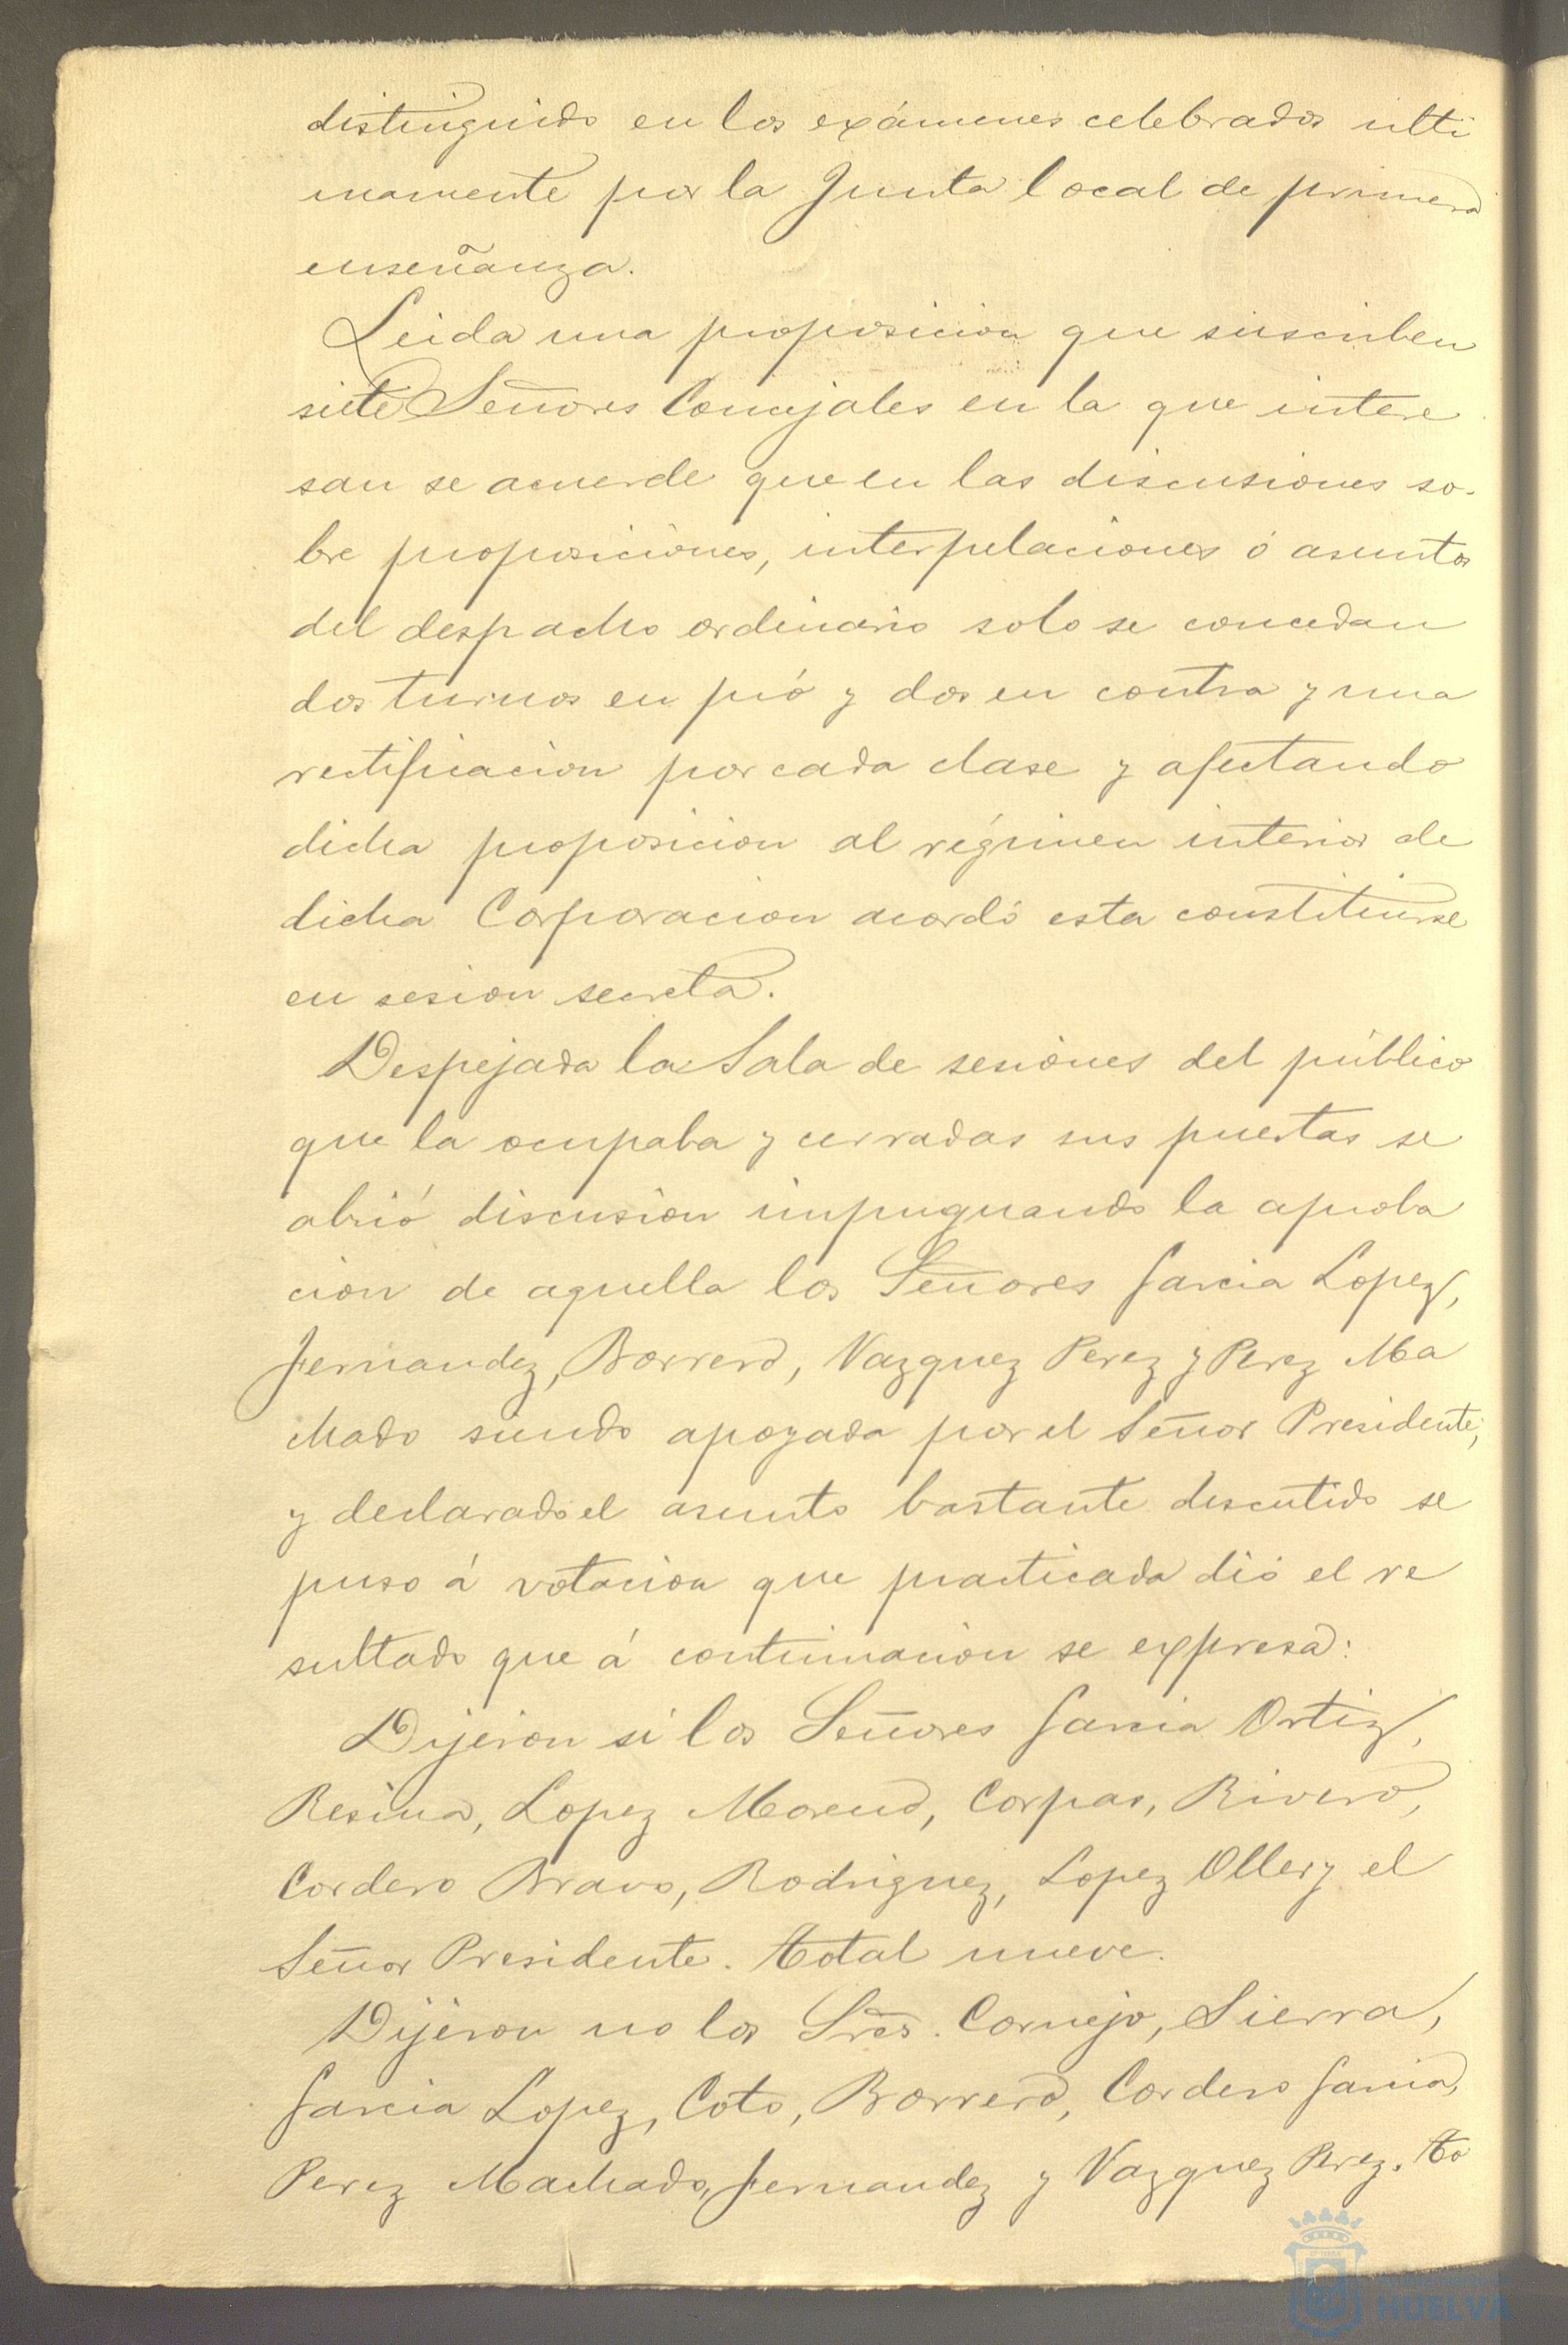 distinguido en los exámenes celebrados ulti
mamente por la Junta local de primera
enseñanza.
Leida una proposicion que suscriben
siete Señores Concejales en la que intere
san se acuerde que en las discusiones so-
bre proposiciones, interpelaciones ó asuntos
del despacho ordinario solo se concedan
dos turnos en pró y dos en contra y una
rectificacion por cada clase y afectando
dicha proposicion al régimen interior de
dicha Corporacion acordó esta constituirse
en sesion secreta.
Despejada la Sala de sesiones del público
que la ocupaba y cerradas sus puertas se
abrió discusion impugnando la aproba
cion de aquella los Señores Garcia Lopez,
Fernandez, Borrero, Vazquez Perez y Perez Ma
chado siendo apoyada por el Señor Presidente,
y declarado el asunto bastante discutido se
puso á votacion que practicada dió el re
sultado que á continuacion se expresa:
Dijeron si los Señores Garcia Ortiz,
Resina, Lopez Moreno, Corpas, Rivero,
Cordero Bravo, Rodriguez, Lopez Oller y el
Señor Presidente. Total nueve.
Dijeron no los Sres. Cornejo, Sierra,
Garcia Lopez, Coto, Borrero, Cordero Garcia,
Perez Machado, Fernandez y Vazquez Perez. To
HUELVA